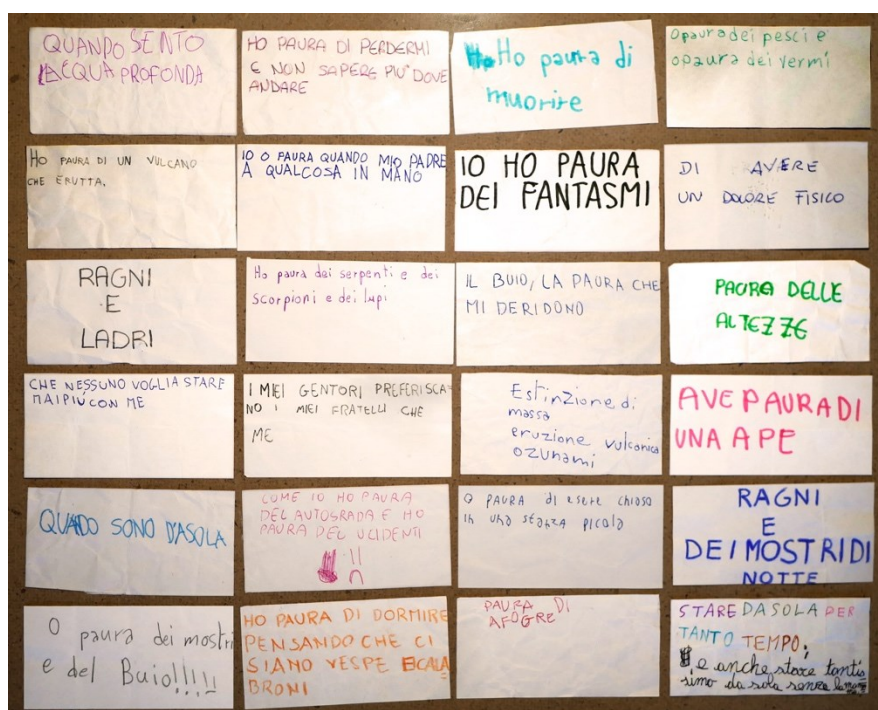 QUANDO SENTO
L'ACQUA PROFONDA
HO PAURA DI PERDERMI
E NON SAPERE PIU' DOVE
ANDARE
Ho paura di
muorire
O paura dei pesci e
o paura dei vermi
HO PAURA DI UN VULCANO
CHE ERUTTA.
IO O PAURA QUANDO MIO PADRE
A QUALCOSA IN MANO
IO HO PAURA
DEI FANTASMI
DI AVERE
UN DOLORE FISICO
RAGNI
E
LADRI
Ho paura dei serpenti e dei
scorpioni e dei lupi
IL BUIO, LA PAURA CHE
MI DERIDONO
PAURA DELLE
ALTEZZE
CHE NESSUNO VOGLIA STARE
MAI PIÚ CON ME
I MIEI GENTORI PREFERISCA-
NO I MIEI FRATELLI CHE
ME
Estinzione di
massa
eruzione vulcanica
o zunami
AVE PAURA DI
UNA APE
QUADO SONO D'ASOLA
COME IO HO PAURA
DEL AUTOSRADA E HO
PAURA DEL UCIDENTI
!!
O PAURA di esere chiaso
in una stanza picola
RAGNI
E
DEI MOSTRI DI
NOTTE
O paura dei mostri
e del Buio!!!!!
HO PAURA DI DORMIRE
PENSANDO CHE CI
SIANO VESPE E CALA
BRONI
PAURA DI
AFOGRE
STARE DA SOLA PER
TANTO TEMPO,
e anche stare tantis
simo da sola senza la mamma